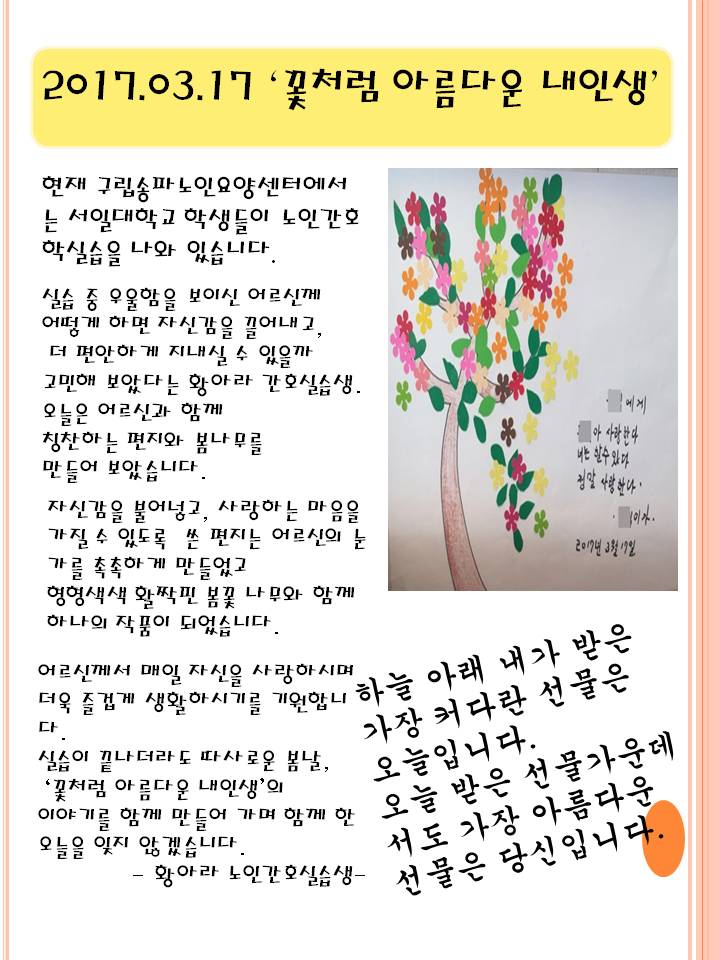 2017.03.17 ‘꽃처럼 아름다운 내인생’
현재 구립송파노인요양센터에서
는 서일대학교 학생들이 노인간호
학실습을 나와 있습니다.
실습 중 우울함을 보이신 어르신께
어떻게 하면 자신감을 끌어내고,
더 편안하게 지내실 수 있을까
고민해 보았다는 황아라 간호실습생.
오늘은 어르신과 함께
칭찬하는 편지와 봄나무를
만들어 보았습니다.
자신감을 불어넣고, 사랑하는 마음을
가질 수 있도록 쓴 편지는 어르신의 눈
가를 촉촉하게 만들었고
형형색색 활짝핀 봄꽃 나무와 함께
하나의 작품이 되었습니다.
어르신께서 매일 자신을 사랑하시며
더욱 즐겁게 생활하시기를 기원합니
다.
실습이 끝나더라도 따사로운 봄날,
‘꽃처럼 아름다운 내인생’의
이야기를 함께 만들어 가며 함께 한
오늘을 잊지 않겠습니다.
- 황아라 노인간호실습생-
에게
아 사랑한다
너는 할수있다
정말 사랑한다.
이가.
2017년 3월 17일
하늘 아래 내가 받은
가장 커다란 선물은
오늘입니다.
오늘 받은 선물가운데
서도 가장 아름다운
선물은 당신입니다.